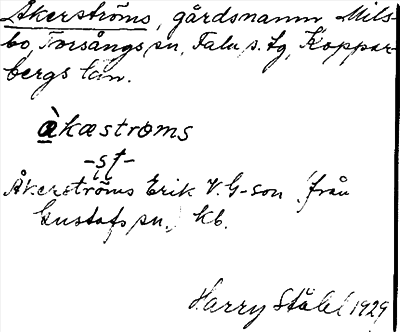 Åkerströms, gårdsnamn Mils-
bo, Torsångs sn, Falu s. lg, Koppar-
bergs län.
åkæstroms
-sṭ-
Åkerströms Erik V. G-son (från
Gustafs sn.) kb.
Harry Ståhl 1929